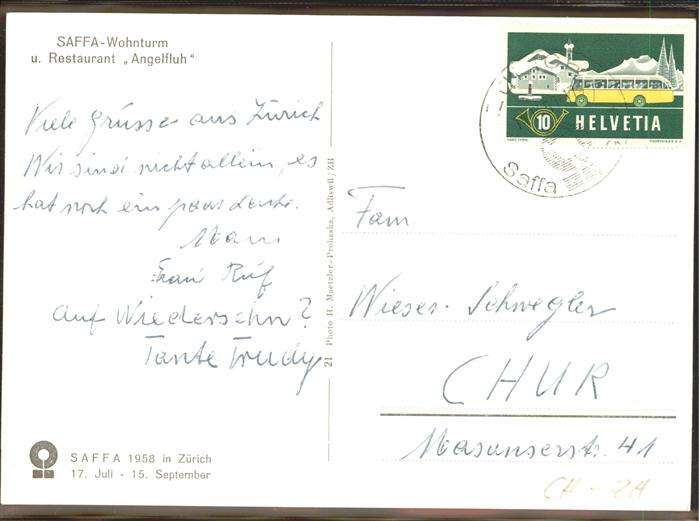 SAFFA-Wohnturm
u. Restaurant „Angelfluh"
Viele Grüsse aus Zürich
Wir sind nicht allein, es
hat noch ein paar Leute.
Mami
Frau Rüf
Auf Wiedersehn?
Tante Trudy
SAFFA 1958 in Zürich
17. Juli - 15. September
21 Photo H. Maetzler-Prohaska, Adliswil/ZH
10 HELVETIA
Saffa
Fam
Wieser-Schwegler
CHUR
Masanserstr. 41
CH - ZH